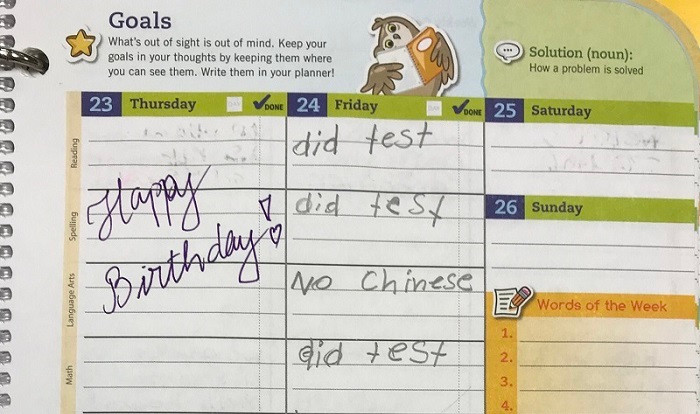 Goals
What's out of sight is out of mind. Keep your
goals in your thoughts by keeping them where
you can see them. Write them in your planner!
Solution (noun):
How a problem is solved
23 Thursday DONE
24 Friday DONE
25 Saturday
Reading
did test
Happy
Birthday!
Spelling
did test
26 Sunday
Language Arts
No Chinese
Words of the Week
1.
2.
3.
4.
Math
did test